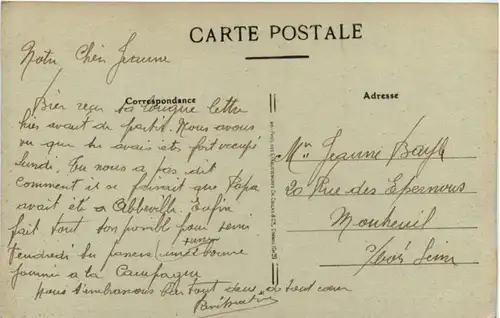 CARTE POSTALE
Notre Chèr Jeanne
Correspondance
Adresse
Bien reçu ta longue lettre
hier avant de partir. Nous avons
vu que tu avais été fort occupé
lundi. Tu nous a pas dit
comment il se faisait que Papa
avait été a Abbeville. Enfin
fait tout ton posible pour venir
vendredi tu passeras une bonne
journee a la Campagne
nous t'embrassons bien tout deux de tout cœur
Mlle Jeanne
20 Rue des Epernous
Montreuil
s/bois Seine